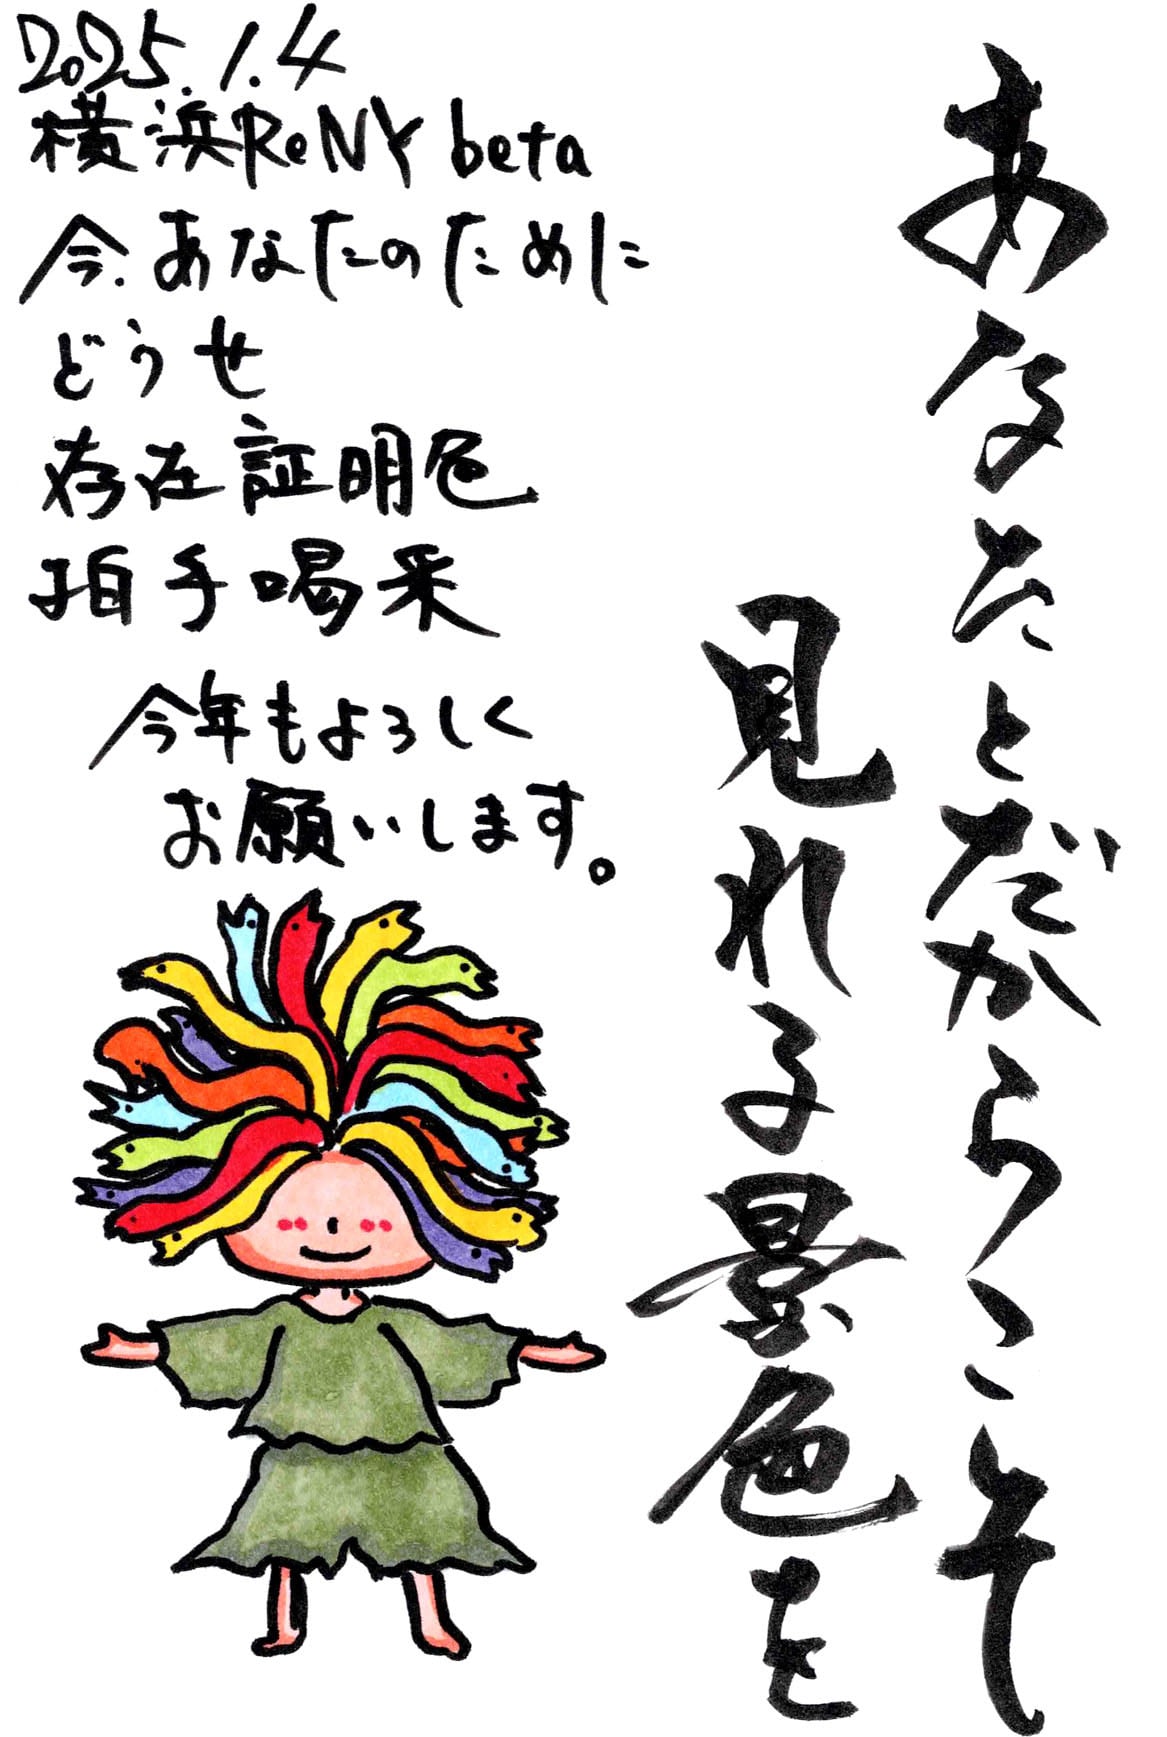 2025.1.4
横浜ReNY beta
今、あなたのために
どうせ
存在証明色
拍手喝采
今年もよろしく
お願いします。
あなたとだからこそ
見れる景色を